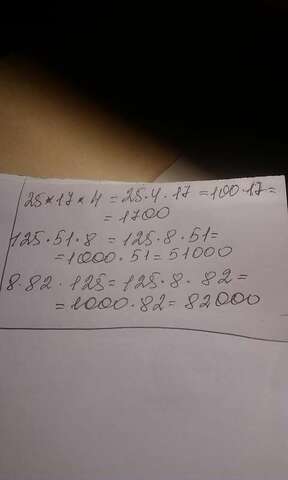 25×17×4 = 25·4·17 = 100·17 =
= 1700
125·51·8 = 125·8·51 =
= 1000·51 = 51000
8·82·125 = 125·8·82 =
= 1000·82 = 82000